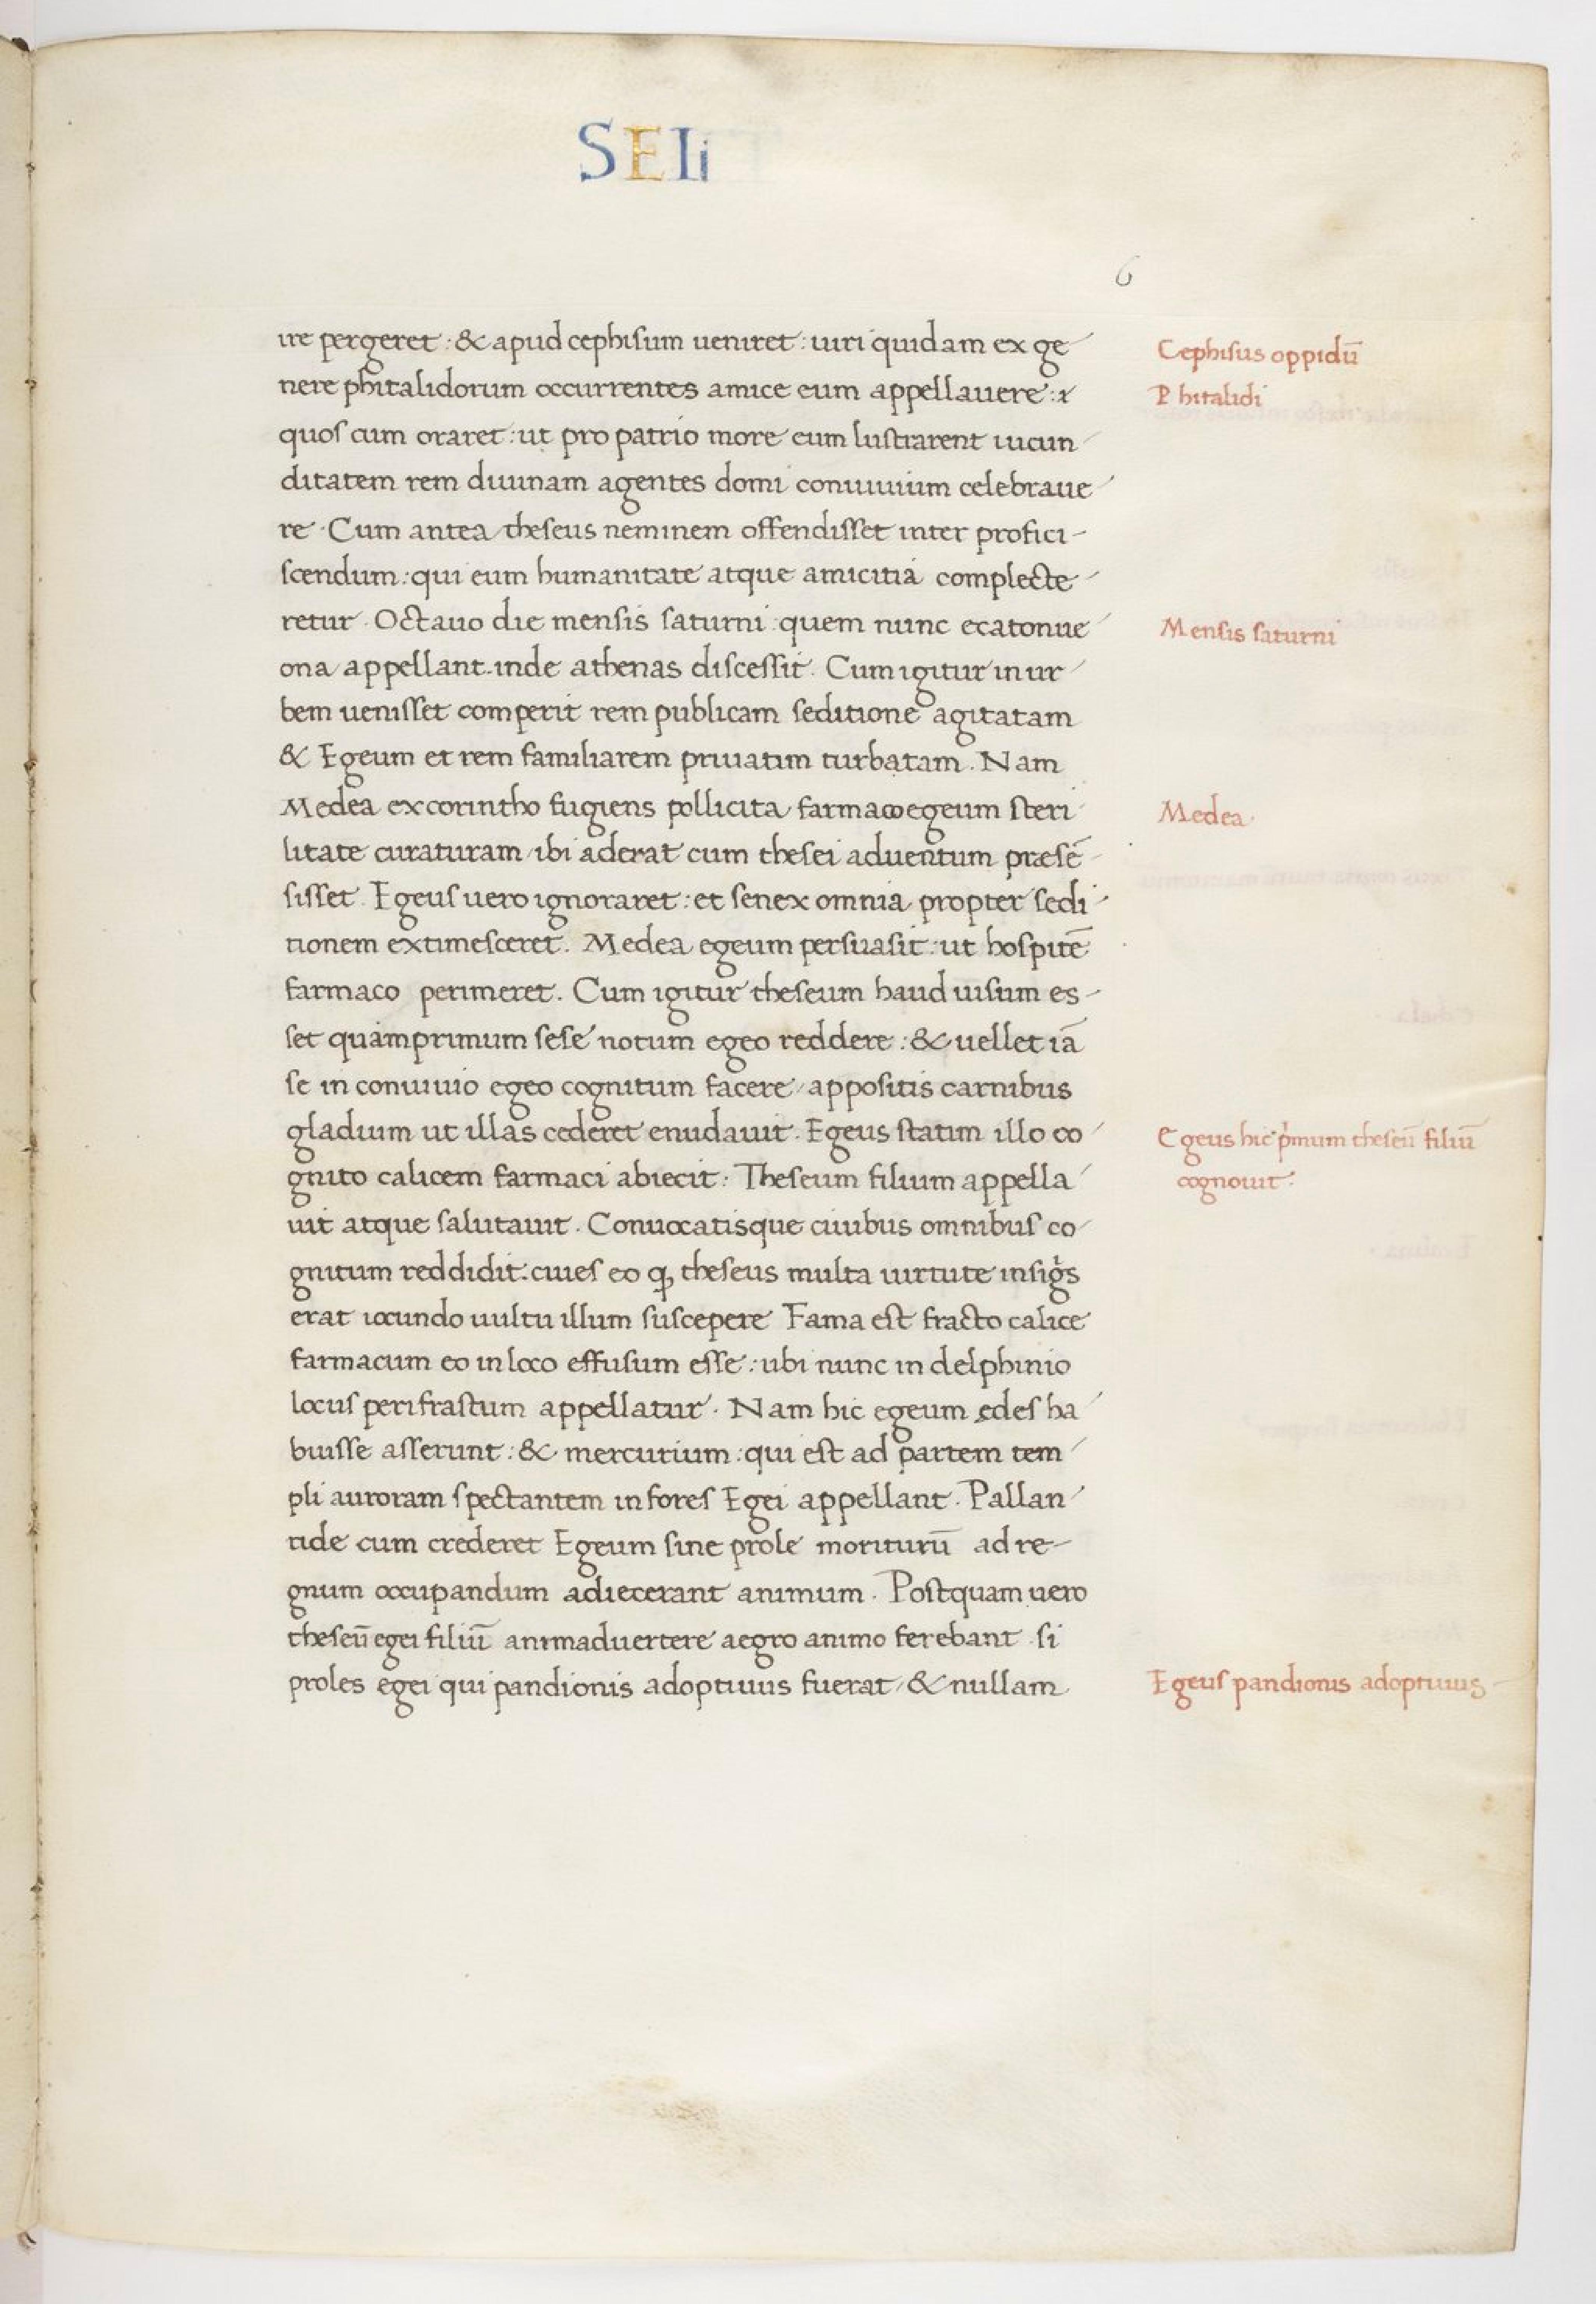 SEIi
6
ire pergeret: & apud cephisum ueniret: uiri quidam ex ge
nere phitalidorum occurrentes amice eum appellauere: &
quos cum oraret: ut pro patrio more eum lustrarent iucun
ditatem rem diuinam agentes domi conuiuium celebraue
re. Cum antea theseus neminem offendisset inter profici-
scendum: qui eum humanitate atque amicitia complecte
retur. Octauo die mensis saturni: quem nunc ecatonue
ona appellant. inde athenas discessit. Cum igitur in ur
bem uenisset comperit rem publicam seditione agitatam
& Egeum et rem familiarem priuatim turbatam. Nam
Medea ex corintho fugiens pollicita farmaco egeum steri
litate curaturam ibi aderat cum thesei aduentum præsē
sisset. Egeus uero ignoraret: et senex omnia propter sedi
tionem extimesceret. Medea egeum persuasit: ut hospitē
farmaco perimeret. Cum igitur theseum haud uisum es-
set quamprimum sese notum egeo reddere: & uellet iā
se in conuiuio egeo cognitum facere appositis carnibus
gladium ut illas cederet enudauit. Egeus statim illo co
gnito calicem farmaci abiecit: Theseum filium appella
uit atque salutauit. Conuocatisque ciuibus omnibus co
gnitum reddidit: ciues eo ꝙ theseus multa uirtute insigs
erat iocundo uultu illum suscepere Fama est fracto calice
farmacum eo in loco effusum esse: ubi nunc in delphinio
locus perifrastum appellatur. Nam hic egeum ędes ha
buisse asserunt: & mercurium: qui est ad partem tem
pli auroram spectantem in fores Egei appellant. Pallan
tide cum crederet Egeum sine prole moriturū ad re-
gnum occupandum adiecerant animum. Postquam uero
theseū egei filiū animaduertere aegro animo ferebant si
proles egei qui pandionis adoptiuus fuerat, & nullam
Cephisus oppidū
Phitalidi
Mensis saturni
Medea
Egeus hic pimum theseū filiū
cognouit.
Egeus pandionis adoptiuus